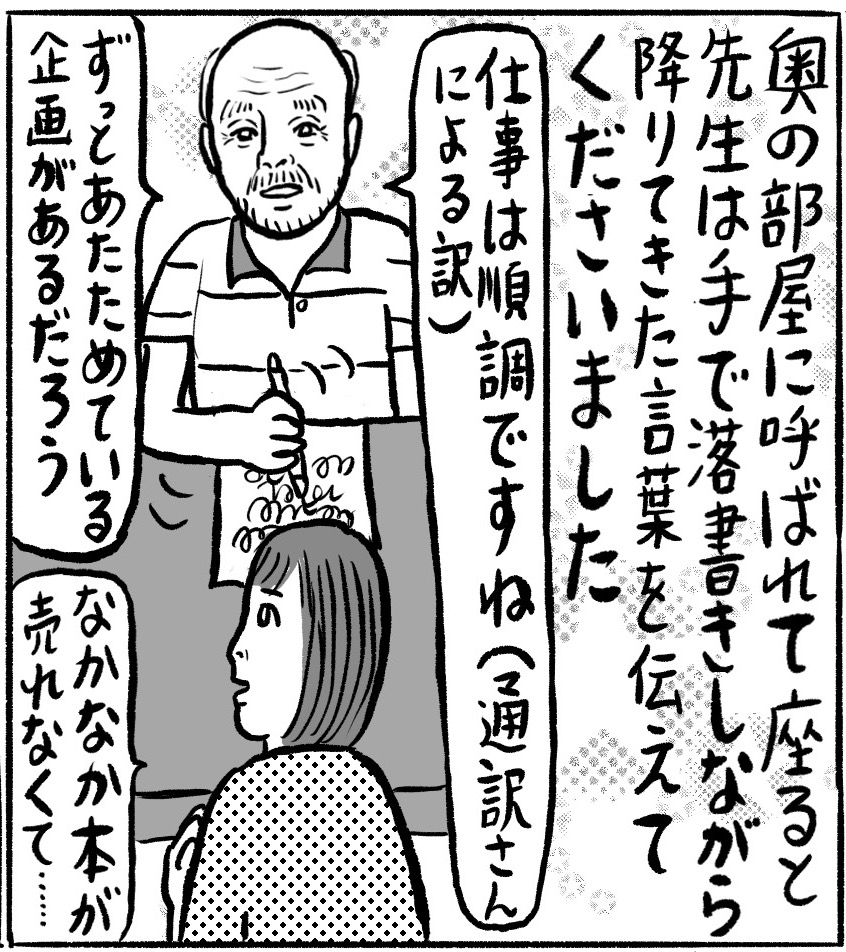 奥の部屋に呼ばれて座ると
先生は手で落書きしながら
降りてきた言葉を伝えて
くださいました
仕事は順調ですね(通訳さん
による訳)
ずっとあたためている
企画があるだろう
なかなか本が
売れなくて……